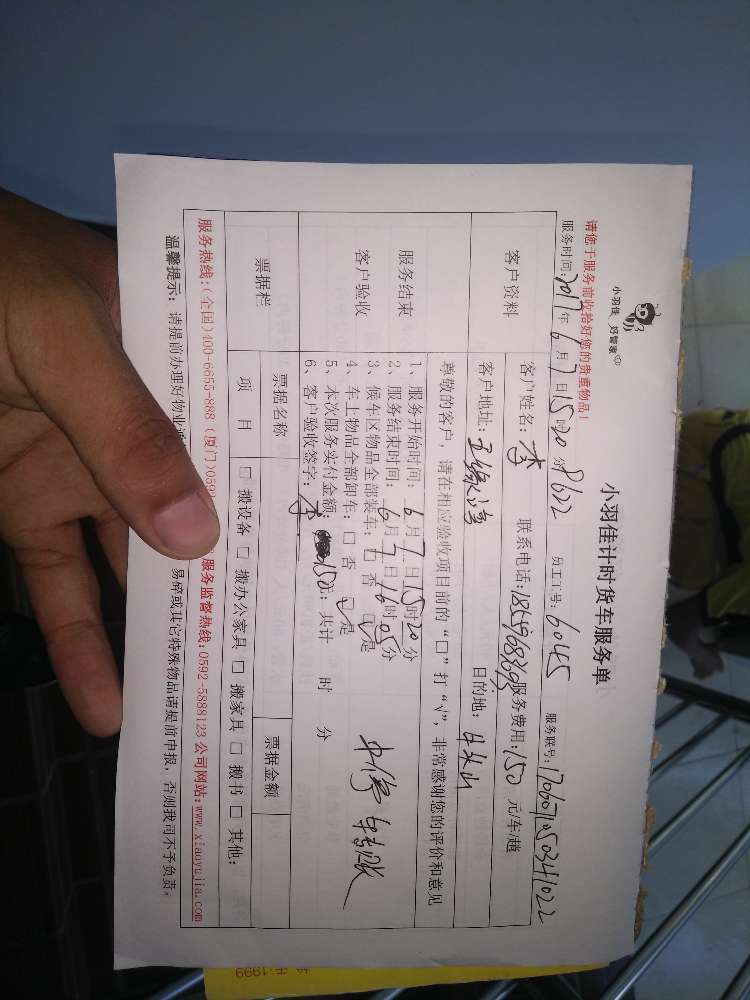 小羽佳 好管家
小羽佳计时货车服务单
请您于服务前收拾好您的贵重物品!
服务时间:2017年6月7日15时20分 8622 员工工号:6045 服务联号:
客户资料
客户姓名:李 联系电话: 服务费用:150元/车/趟
客户地址:五缘公寓 目的地:牛头山
尊敬的客户,请在相应验收项目前的“□”打“√”,非常感谢您的评价和意见
服务结束
客户验收
1、服务开始时间:6月7日15时20分
2、服务结束时间:6月7日16时05分
3、候车区物品全部装车:□ 否 ☑是
4、车上物品全部卸车:□ 否 ☑是
5、本次服务实付金额:150元;共计 时 分
6、客户验收签字:李
转账
票据栏
票据名称 票据金额
项 目 □ 搬设备 □ 搬办公家具 □ 搬家具 □ 搬书 □ 其他:
服务热线:(全国)400-6655-888 (厦门)0592 服务监督热线:0592-5888123 公司网站:www.xiaoyujia.com
温馨提示: 请提前办理好物业 易碎或其它特殊物品请提前申报,否则我司不予负责。